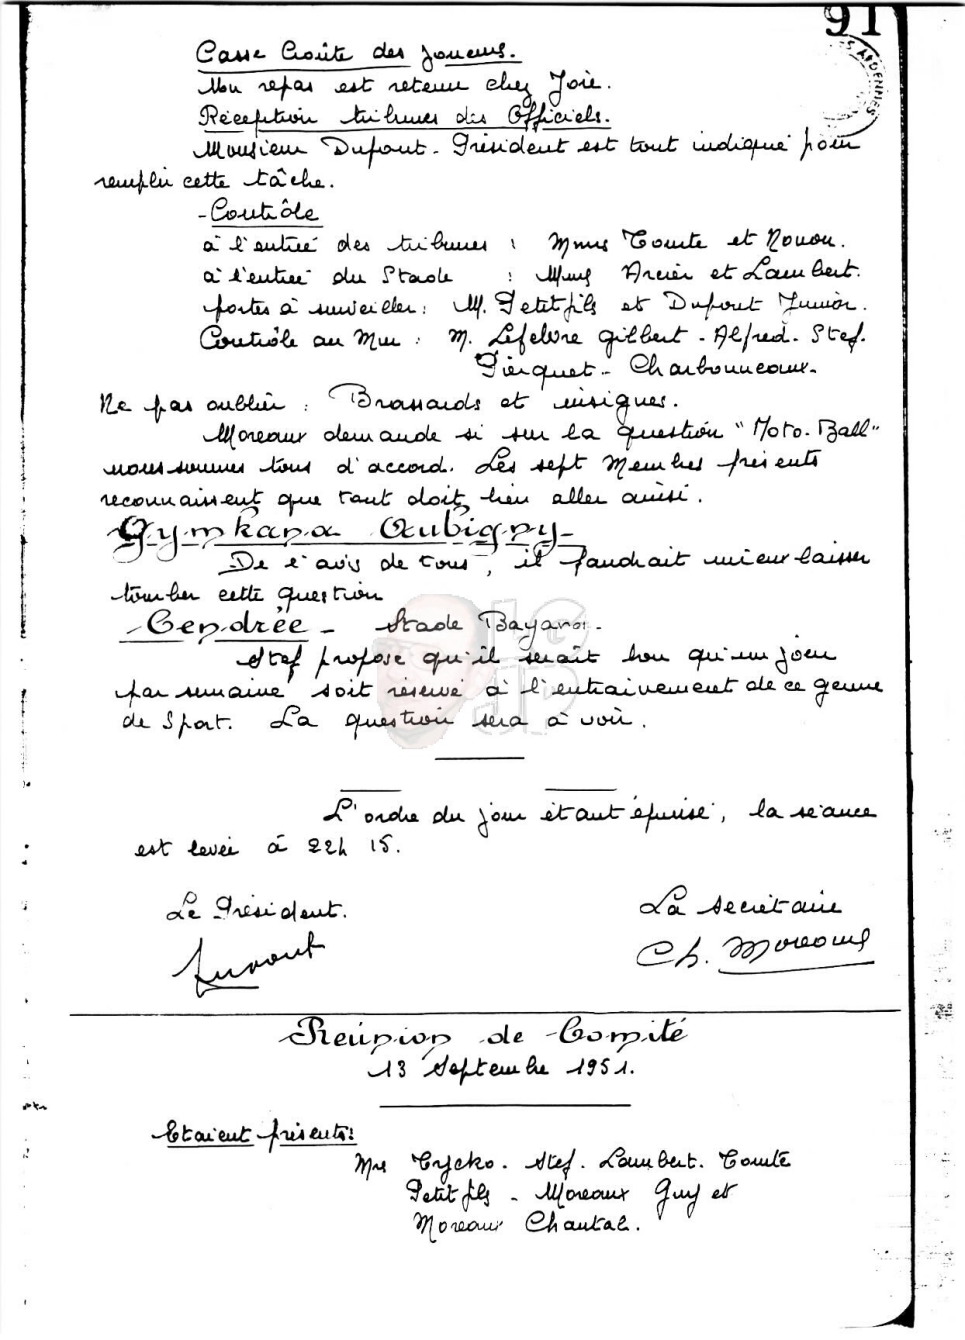 91
S ARDENNES
Casse Croûte des Joueurs.
Un repas est retenu chez Joie.
Réception tribunes des Officiels.
Monsieur Dupont - Président est tout indiqué pour
remplir cette tâche.
- Contrôle
à l'entrée des tribunes : Mmes Comte et Nouou.
à l'entrée du Stade : Mmes Arcier et Lambert.
portes à surveiller : M. Petitfils et Dupont Junior.
Contrôle au Mur : M. Lefebvre Gilbert - Alfred - Stef.
Pierquet - Charbonneaux.
Ne pas oublier : Brassards et insignes.
Moreaux demande si sur la question "Moto-Ball"
nous sommes tous d'accord. Les sept Membres présents
reconnaissent que tout doit bien aller ainsi.
Gymkana Aubigny -
De l'avis de tous, il faudrait mieux laisser
tomber cette question
Cendrée - Stade Bayard -
Stef propose qu'il serait bon qu'un jour
par semaine soit réservé à l'entrainement de ce genre
de Sport. La question sera à voir.
L'ordre du jour étant épuisé, la séance
est levée à 22h 15.
Le Président. La secrétaire
Dupont Ch. Moreaux
Réunion de Comité
13 Septembre 1951.
Etaient présents :
Mrs Tycko. Stef. Lambert. Comte
Petitfils - Moreaux Guy et
Moreaux Chantal.